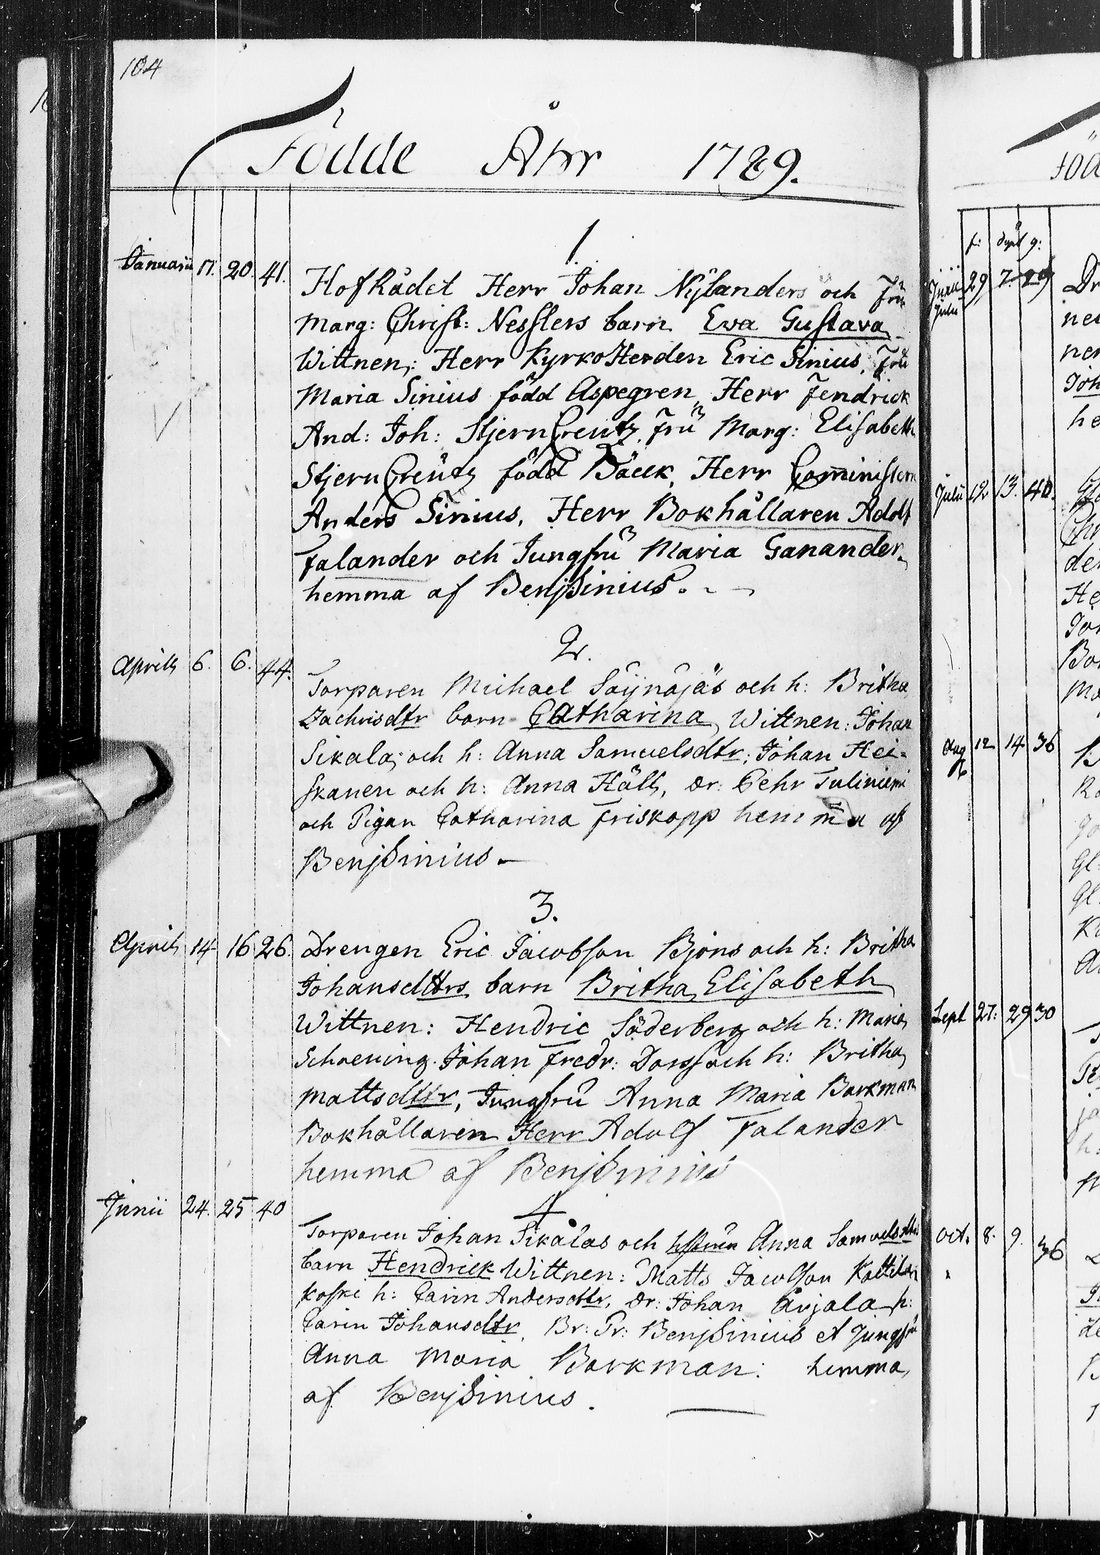 104
Födde Åhr 1789.
1.
Januarii 17. 20. 41. HofRådet Herr Johan Nÿlanders och Frü
Marg: Christ: Nesslers barn Ewa Gustava
Wittnen; Herr KyrkoHerden Eric Sinius, Frü
Maria Sinius född Aspegren, Herr Fendrick
And: Joh: StjernCreutz, Frü Marg: Elisabeth
StjernCreütz född Bäck, Herr Cominister
Anders Sinius, Herr Bokhållaren Adolf
Falander och Jungfrü Maria Ganander.
hemma af Benj Sinius.
2.
Aprilis 6. 6. 44. Torparen Michael Säÿnäjäs och h: Britha
Zachrisdtr barn Catharina, Wittnen: Johan
Sikala, och h: Anna Samuelsdtr, Johan Hei-
skanen och h: Anna Häll, dr: Pehr Juliniemi
och Pigan Catharina Friskopp hemma af
Benj Sinius
3.
Aprilis 14. 16 26. Drengen Eric Jacobsson Björns och h: Britha
Johansdttrs barn Britha Elisabeth
Wittnen: Hendric Söderberg och h: Maria
Schoening. Johan Fredr: och h: Britha
Mattsdttr, Jungfrü Anna Maria Barkman
Bokhållaren Herr Adolf Falander
hemma af Benj Sinius
4
Junii 24. 25 40 Torparen Johan Sikalas och hustrun Anna Samuelsdtr
barn Hendrick Wittnen: Matts Jacobsson Kattila
koski h: Carin Andersdtr, dr: Johan Arjala h:
Carin Johansdtr, Br: Pr: Benj Sinius et Jungfr
Anna Maria Barkman: hemma
af Benj Sinius.
Föd
f: döpt g:
Junii 29 7. 29
Julii
Julii 12 13. 40.
Aug 12 14 36
Sept 27. 29 30
Oct. 8. 9. 36